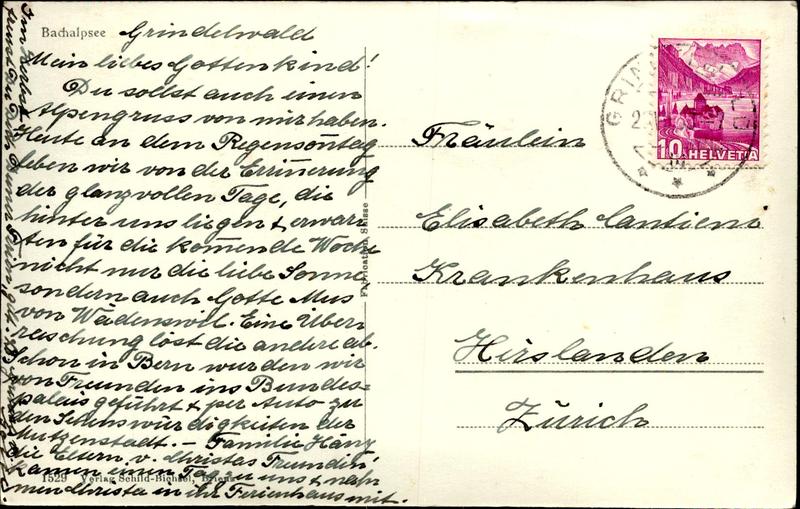 Bachalpsee Grindelwald
Mein liebes Gottenkind!
Du sollst auch einen
Alpengruss von mir haben.
Heute an dem Regensontag
leben wir von der Erinerung
der glanzvollen Tage, die
hinter uns liegen & erwar-
ten für die komende Woche
nicht nur die liebe Sonne
sondern auch Gotte Mus
von Wädenswil. Eine Über
raschung löst die andere ab.
Schon in Bern wurden wir
von Freunden ins Bundes=
palais geführt & per Auto zu
den Sehenswürdigkeiten der
Mutzenstadt. – Familie Hänz
die Eltern v. Christas Freundin
kamen einen Tag zu uns & nah
men Christa in ihr Ferienhaus mit.
1529 Verlag Schild-Bichsel, Brienz
Fabrication Suisse
GRIN
10 HELVETIA
Fräulein
Elisabeth Cantieni
Krankenhaus
Hirslanden
Zürich